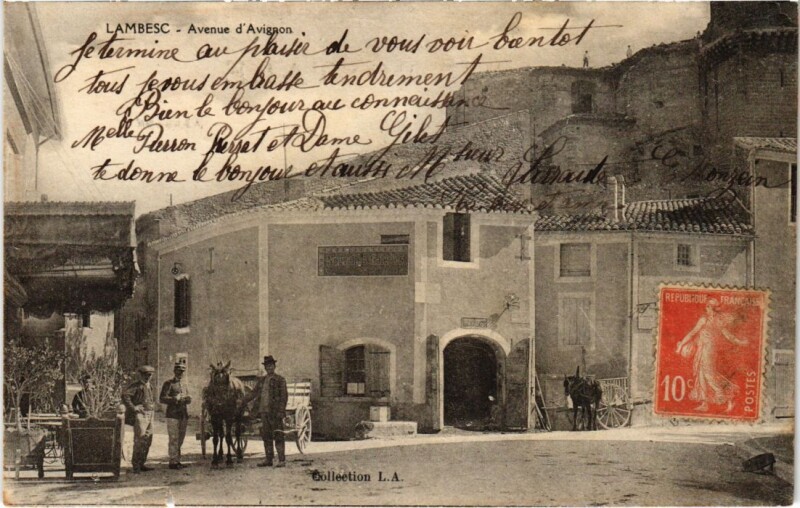 LAMBESC - Avenue d'Avignon
Je termine au plaisir de vous voir bientot
tous je vous embasse tendrement
Bien le bonjour au connaissance
Melle Pierron et Dame Gilet
te donne le bonjour et aussi
REPUBLIQUE FRANÇAISE
10c
POSTES
Collection L.A.